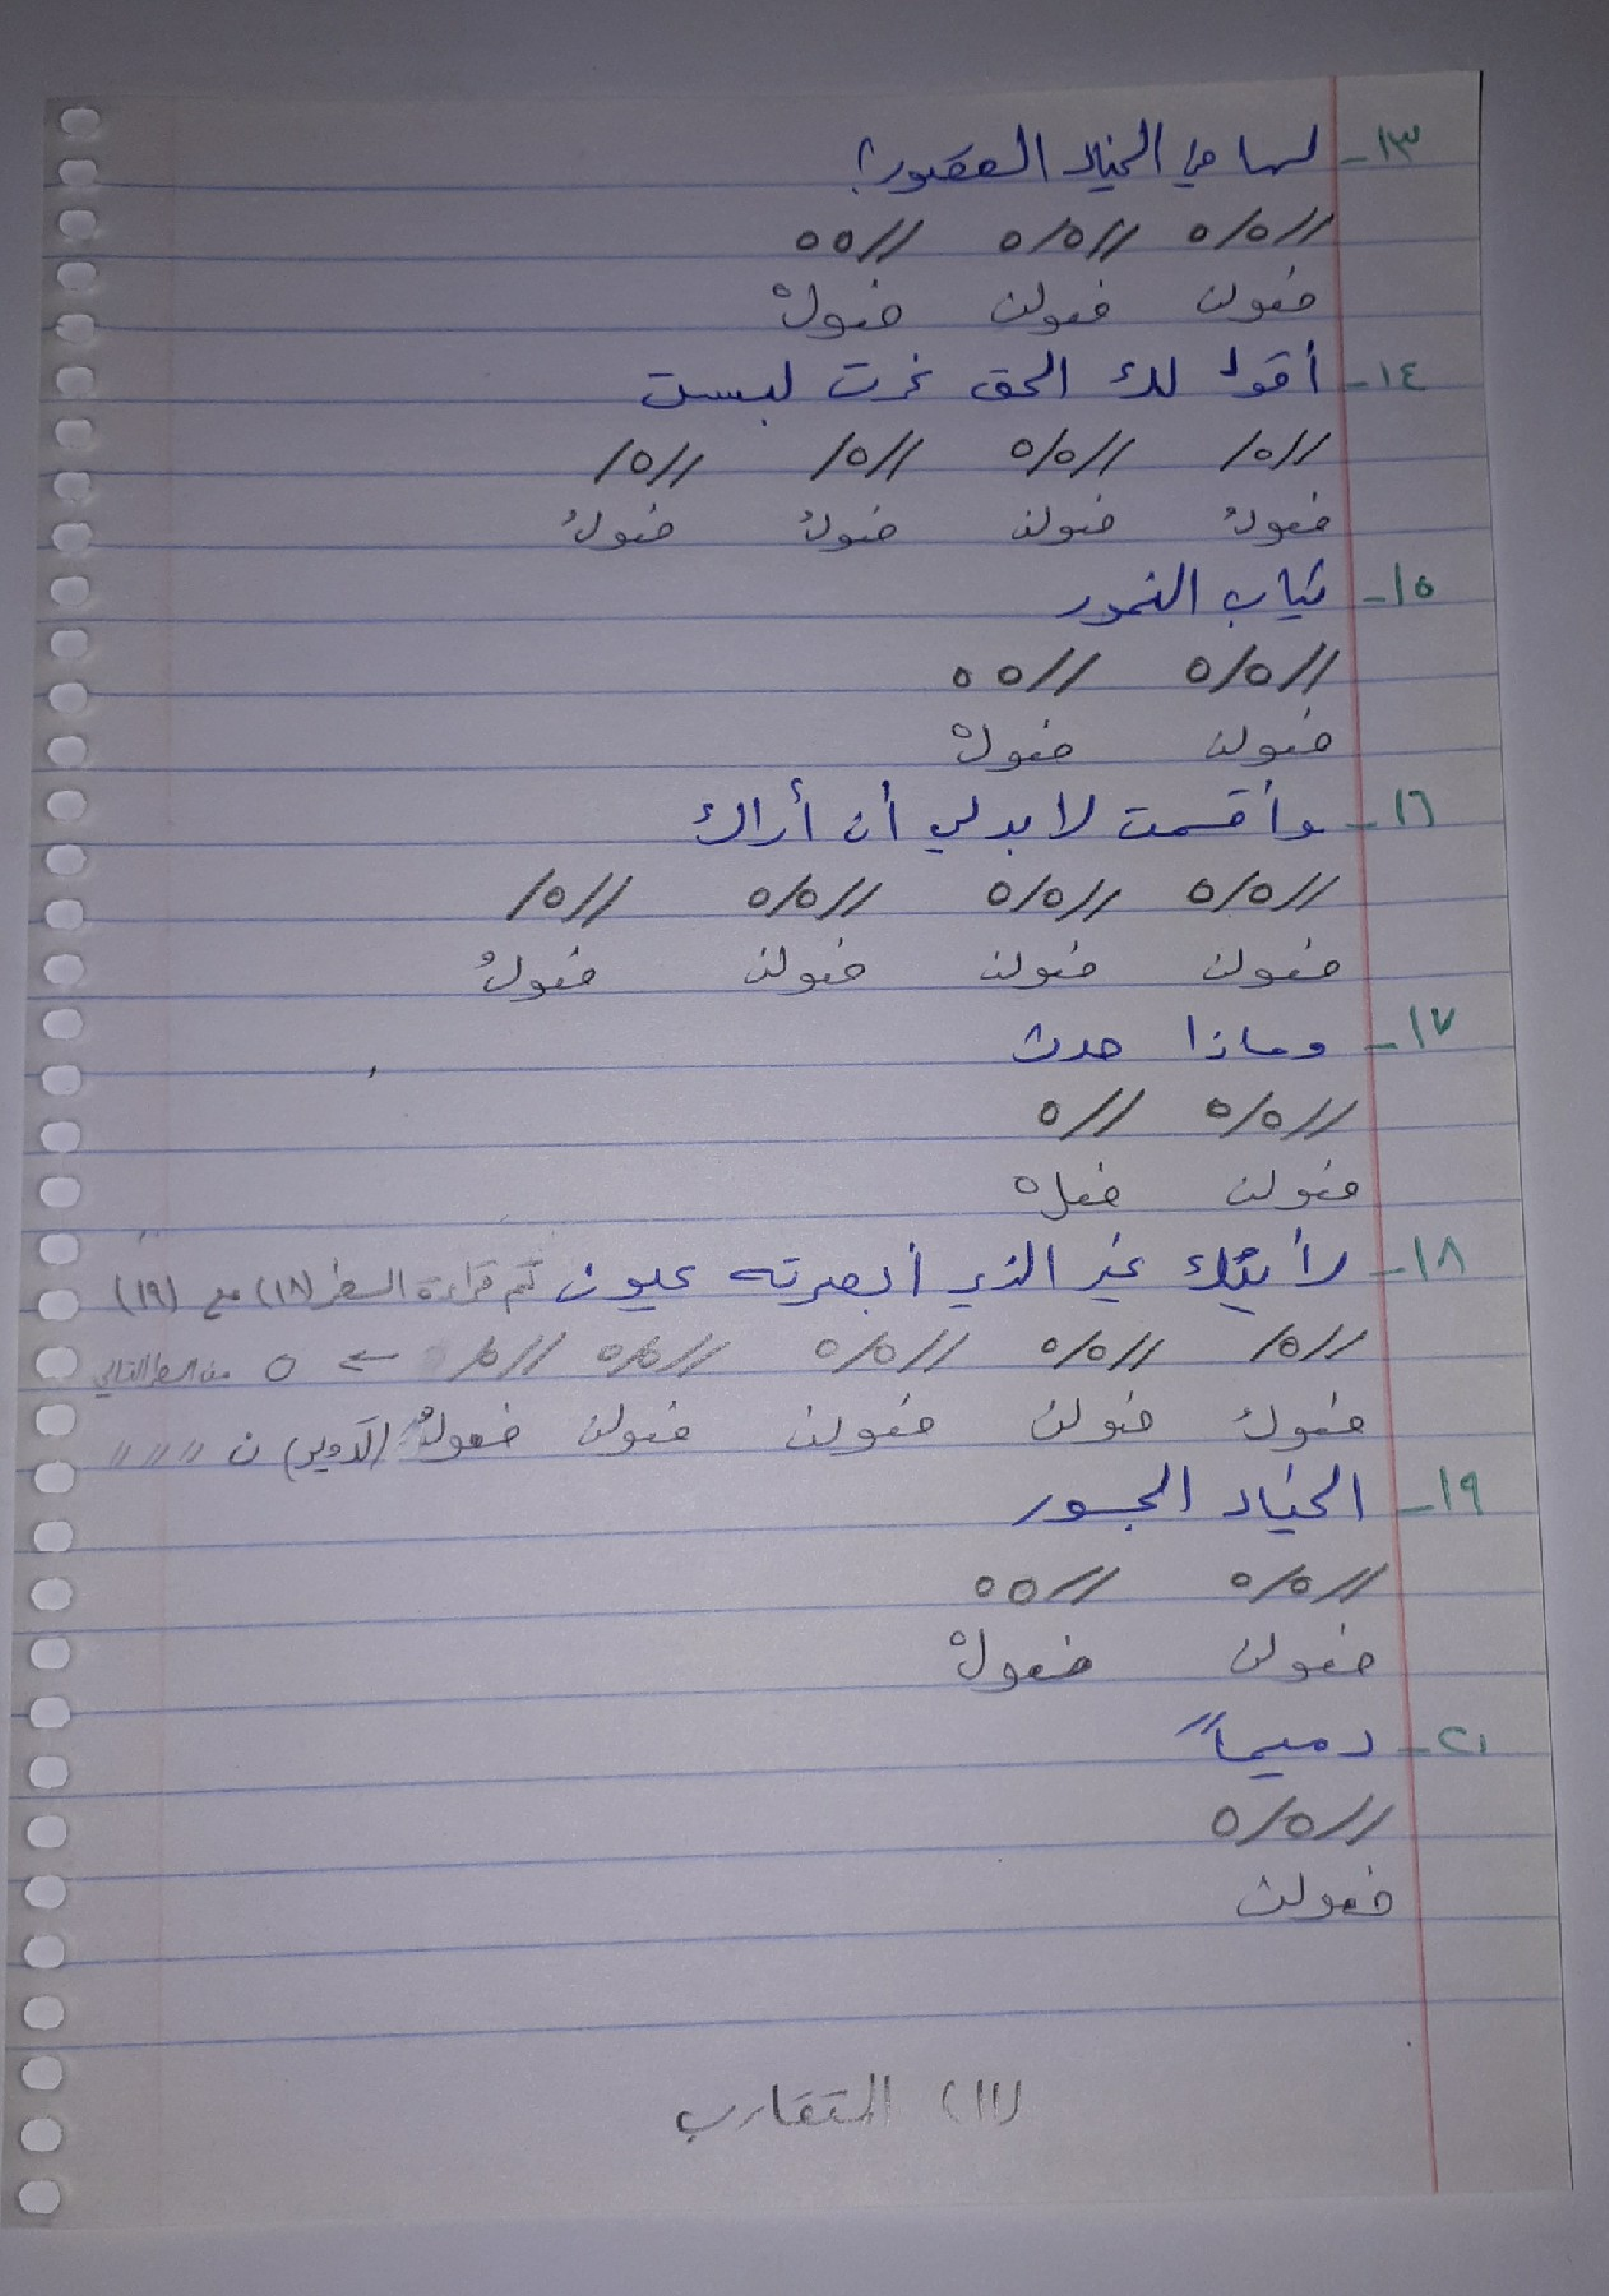 ١٣- لها في الخيال القصور؟
//٥/٥ //٥/٥ //٥٥
فعولن فعولن فعولْ
١٤- أقول لك الحق غرت لبست
//٥/ //٥/٥ //٥/ //٥/
فعولُ فعولن فعولُ فعولُ
١٥- ثياب النمور
//٥/٥ //٥٥
فعولن فعولْ
١٦- وأقسمت لا بد لي أن أراك
//٥/٥ //٥/٥ //٥/٥ //٥/
فعولن فعولن فعولن فعولُ
١٧- وماذا حدث
//٥/٥ //٥
فعولن فعلْ
١٨- رأيتك غير الذي أبصرته عيون تم قراءة السطر (١٨) مع (١٩)
//٥/ //٥/٥ //٥/٥ //٥/٥ //٥/ ← ٥ من السطر التالي
فعولُ فعولن فعولن فعولن فعولُ (التدوير) ن " " "
١٩- الخيال الجسور
//٥/٥ //٥٥
فعولن فعولْ
٢٠- دميماً
//٥/٥
فعولن
(١١) المتقارب